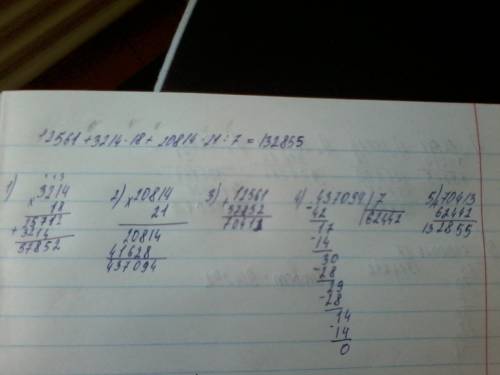 12561 + 3214 · 18 + 20814 · 21 : 7 = 132855
1)
× 3214
18
25712
+ 3214
57852
2) × 20814
21
20814
41628
437094
3) + 12561
57852
70413
4) - 437094 | 7
42 | 62442
17
- 14
30
- 28
29
- 28
14
- 14
0
5) 70413
62442
132855